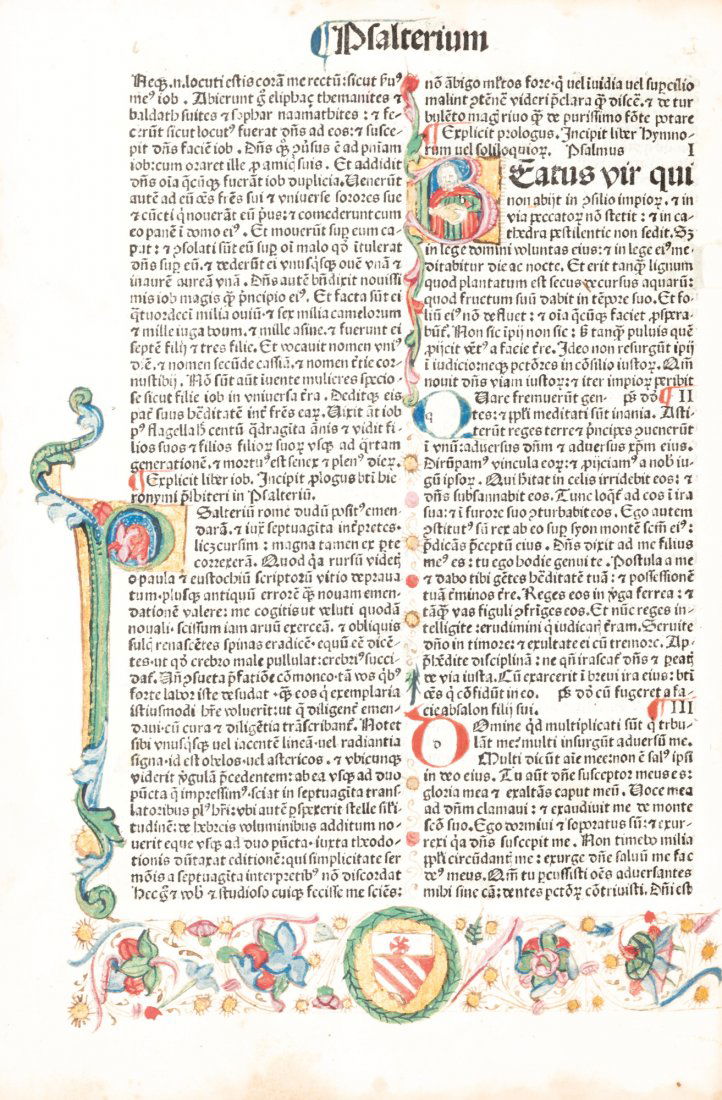 Psalterium
Neqꝫ.n.locuti estis corā me rectū:sicut ẜuꝰ
meꝰ iob. Abierunt gͦ eliphaꝫ themanites ⁊
baldath suites ⁊ sophar naamathites: ⁊ fe-
cerūt sicut locutꝰ fuerat dn̄s ad eos: ⁊ susce-
pit dn̄s faciē iob. Dn̄s qꝫ ꝯuersus ē ad pn̄iam
iob:cum oraret ille ꝓ amicꝭ suis. Et addidit
dn̄s oīa q̄cūqꝫ fuerāt iob duplicia. Uenerūt
autē ad eū oēs frēs sui ⁊ vniuerse sorores sue
⁊ cūcti q̇ nouerāt eū pꝰus: ⁊ comederunt cum
eo panē ī domo eiꝰ. Et mouerūt suꝑ eum ca-
put: ⁊ ꝯsolati sūt eū suꝑ oī malo qd̄ ītulerat
dn̄s suꝑ eū. ⁊ dederūt ei vnusqꝭsqꝫ ouē vnā ⁊
inaurē aureā vnā. Dn̄s autē bn̄dixit nouissi
mis iob magis qꝫ pͥncipio eiꝰ. Et facta sūt ei
qͣtuordeci milia ouiū ⁊ sex milia camelorum
⁊ mille iuga boum. ⁊ mille asine. ⁊ fuerunt ei
septē filij ⁊ tres filie. Et vocauit nomen vniꝰ
diē. ⁊ nomen secūde cassiā. ⁊ nomen t̄tie cor-
nustibij. Nō sūt aūt īuente mulieres specio-
se sicut filie iob in vniuersa t̄ra. Deditqꝫ eis
pat̄ suus h̄editatē int̄ frēs eaꝝ. Uixit aūt iob
pꝰ flagella h̄ centū qͣdragīta ānis ⁊ vidit fi-
lios suos ⁊ filios filioꝝ suoꝝ vsqꝫ ad qͣrtam
generationē. ⁊ mortuꝰ est senex ⁊ plenꝰ dieꝝ.
Explicit liber iob. Incipit ꝓlogus bt̄i hie
ronymi pͥsbiteri in Psalteriū.
Psalteriū rome dudū positꝰ emen-
darā. ⁊ iuxͣ septuagīta īterpretes.
licꝫ cursim: magna tamen ex ꝑte
correxerā. Quod qꝛ rursū videtꝭ
o paula ⁊ eustochiū scriptorū vitio deꝓaua
tum.plusqꝫ antiquū errorē qꝫ nouam emen-
dationē valere: me cogitis ut veluti quodā
nouali. scissum iam aruū exerceā. ⁊ obliquis
sulcꝭ renascētes spinas eradicē. equū cē dicē-
tes.ut qd̄ crebro male pullulat:crebriꝰ succi-
daꝉ. Uñ ꝯsueta pͥfatiōe cōmoneo.tā vos qͥbꝰ
forte labor iste desudat. qꝫ eos qͥ exemplaria
istiusmodi hr̄e voluerīt.ut q̄ diligenter emen-
daui.cū cura ⁊ diligētia trāscribant. Notet
sibi vnusqꝭsqꝫ uel iacentē lineā.uel radiantia
signa.id est obelos.uel astericos. ⁊ vbicunqꝫ
viderit ỹgulā pͥcedentem:ab ea vsqꝫ ad duo
pūcta q̄ impressimꝰ.sciat in septuagīta trans
latoribus plꝰ hr̄i:vbi autē ꝑspexerit stelle sili
tudinē:de hebreis voluminibus additum no
uerit eque vsqꝫ ad duo pūcta.iuxta theodo-
tionis dūtaxat editionē:qui simplicitate ser
mōis a septuagīta interpretibꝰ nō discordat
Hec gͦ ⁊ vob̄ ⁊ studioso cuiqꝫ fecisse me sciēs:
nō ābigo mltos fore.qͥ vel īuidia vel suꝑcilio
malint ꝯtēnē videri pͥclara qꝫ discē.⁊ de tur
bulēto magͥ riuo qꝫ de purissimo fōte potare
Explicit prologus. Incipit liber hymno-
rum uel soliloquioꝝ. Psalmus I
BEatus vir qui
non abijt in ꝯsilio impioꝝ. ⁊ in
via peccatoꝝ nō stetit: ⁊ in ca-
thedra pestilentie non sedit. Sꝫ
in lege domini voluntas eius: ⁊ in lege eiꝰ me-
ditabitur die ac nocte. Et erit tanqꝫ lignum
quod plantatum est secus decursus aquarū:
quod fructum suū dabit in tēpore suo. Et fo-
liū eiꝰ nō defluet: ⁊ oīa q̄cūqꝫ faciet ꝓspera-
būt. Non sic īpij non sic: ẜ tanqꝫ puluis quē
ꝓijcit vētꝰ a facie t̄re. Ideo non resurgūt īpij
ī iudicio:neqꝫ pctōres in cōsilio iustoꝝ. Qm̄
nouit dn̄s viam iustoꝝ: ⁊ iter impioꝝ peribit
Quare fremuerūt gen- ps dd̄ II
tes: ⁊ ppl̄i meditati sūt inania. Asti-
terūt reges terre ⁊ pͥncipes ꝯuenerūt
ī vnū:aduersus dn̄m ⁊ aduersus xp̄m eius.
Dirūpamꝰ vincula eoꝝ: ⁊ ꝓijciamꝰ a nob̄ iu-
gū ipsoꝝ. Qui hītat in celis irridebit eos: ⁊
dn̄s subsannabit eos. Tunc loqͥt̄ ad eos ī ira
sua: ⁊ ī furore suo ꝯturbabit eos. Ego autem
ꝯstitutꝰ sū rex ab eo suꝑ syon montē scm̄ eiꝰ:
pͥdicās pͥceptū eius. Dn̄s dixit ad me filius
meꝰ es: tu ego hodie genui te. Postula a me
⁊ dabo tibi gētes h̄editatē tuā: ⁊ possessionē
tuā t̄minos t̄re. Reges eos in ỹga ferrea: ⁊
tāqꝫ vas figuli ꝯfrīges eos. Et nūc reges in-
telligite:erudimini qͥ iudicatꝭ t̄ram. Seruite
dn̄o in timore: ⁊ exultate ei cū tremore. Ap-
pͥhēdite disciplinā: ne qn̄ irascat̄ dn̄s ⁊ ꝑeatꝭ
de via iusta. Cū exarserit ī breui ira eius: bt̄i
oēs qͥ cōfidūt in eo. ps dd̄ cū fugeret a fa-
cie absalon filij sui. III
Domine qͥd multiplicati sūt qͥ tribu
lāt me:multi insurgūt aduersū me.
Multi dicūt aīe mee:non ē salꝰ ipsi
in deo eius. Tu aūt dn̄e susceptor meus es:
gloria mea ⁊ exaltās caput meū. Uoce mea
ad dn̄m clamaui: ⁊ exaudiuit me de monte
scō suo. Ego dormiui ⁊ soporatus sū: ⁊ exur-
rexi qꝛ dn̄s suscepit me. Non timebo milia
ppl̄i circūdantꝭ me: exurge dn̄e saluū me fac
deꝰ meus. Qm̄ tu ꝑcussisti oēs aduersantes
mihi sine cā: dentes pctōꝝ cōtriuisti. Dn̄i est